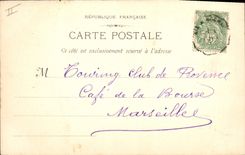 II
RÉPUBLIQUE FRANÇAISE
CARTE POSTALE
Ce côté est exclusivement réservé à l'adresse
M Touring Club de Provence
Café de la Bourse
Marseille